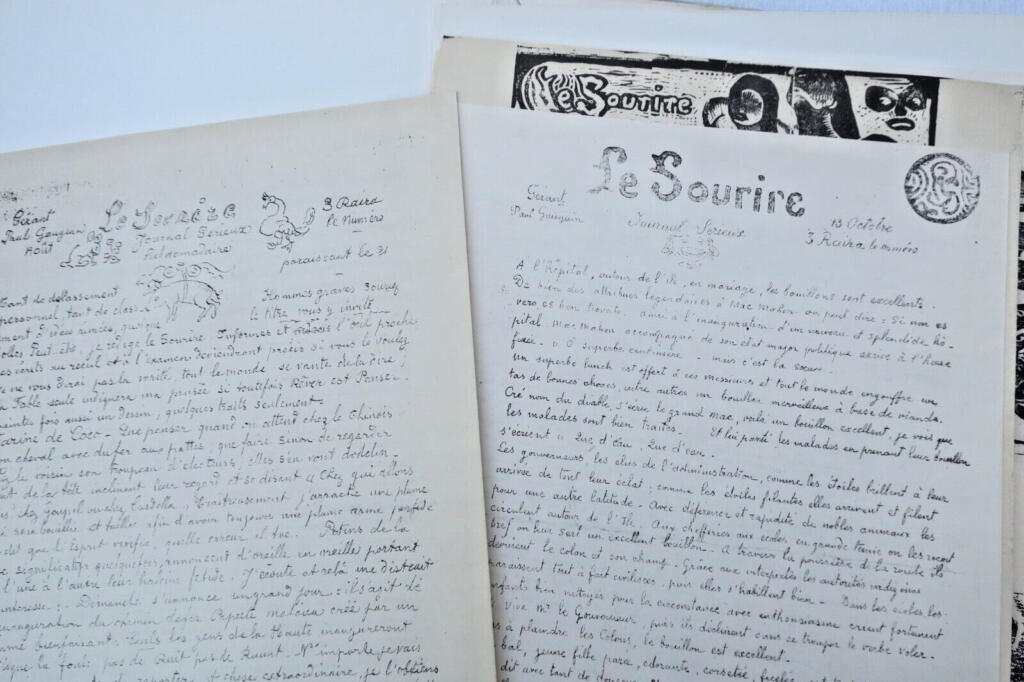 Gérant
Paul Gauguin
Août
Le Sourire
Journal Sérieux
hebdomadaire
3 Raira
le Numéro
paraissant le 21
Tant de délassement
personnel, tant de class
d'idées aimées, quoique
Hommes graves souriez
le titre vous y invite
folles Peut être, je rédige le Sourire. Informes et l'œil proche
récits au recul et à l'examen deviendront précis si vous le voulez
ne vous dirai pas la vérité, tout le monde se vante de la dire,
la Fable seule indiquera ma pensée si toutefois Rêver est Penser.
maintes fois aussi un dessin, quelques traits seulement
Farine de Coco - Que penser quand on attend chez le Chinois
un cheval avec du fer aux pattes, que faire sinon de regarder
le voisin son troupeau d'électeurs; Elles s'en vont dodelin-
de la tête inclinent leur regard et se disant " Chez qui allons
chez Cardella " Traitreusement j'arrache une plume
afin d'avoir toujours une plume arme perfide
dit que l'Esprit vérifie, quelle erreur il tue. Potins de la
significatifs quelquefois, annoncent d'oreille en oreille portant
l'une à l'autre leur haleine fétide. J'écoute et cela me distrait
m'intéresse. Demanche s'annonce un grand jour: il s'agit de
inauguration du chemin de créé par un
bienfaisant. les gens de la Haute inaugureront
que la foule pas de Nuit pas de N'importe je vais
reporter, et chose extraordinaire, je l'obtiens
Le Sourire
Le Sourire
Gérant
Paul Gauguin
Journal Sérieux
13 Octobre
3 Raira le numéro
A l'Hôpital, autour de l'île, en mariage, les bouillons sont excellents.
De bien des attribues légendaires à Mac Mahon on peut dire: Si non es
vero es bon trovato. ainsi à l'inauguration d'un nouveau et splendide hô-
pital Mac Mahon accompagné de son état major politique arrive à l'heure
fixée. " O superbe cantinière - mais c'est la sœur.
un superbe lunch est offert à ces messieurs et tout le monde engouffre un
tas de bonnes choses, entre autres un bouillon merveilleux à base de viande.
Cré nom du diable, s'écrie le grand Mac, voilà un bouillon excellent, je vois que
les malades sont bien traités. Et lui parti: les malades en prenant leur bouillon
s'écrient " Que d'eau, Que d'eau.
Les gouverneurs, les élus de l'administration, comme les Etoiles brillent à leur
arrivée de tout leur éclat; comme les étoiles filantes elles arrivent et filent
pour une autre latitude. Avec déférence et rapidité de nobles animaux les
circulent autour de l'Ile. Aux chefferies aux écoles en grande tenue on les reçoit
bref on leur sert un excellent bouillon. A travers la poussière de la route ils
devinent le colon et son champ. Grace aux interprètes les autorités indigènes
paraissent tout à fait civilisées, puis elles s'habillent bien - Dans les écoles les
enfants bien nettoyés pour la circonstance avec enthousiasme crient fortement
Vive Mr le Gouverneur, puis ils déclinent sans se tromper le verbe voler.
à plaindre les Colons, le bouillon est excellent.
bal, jeune fille parée, odorante, corsetée,
dit avec tant de